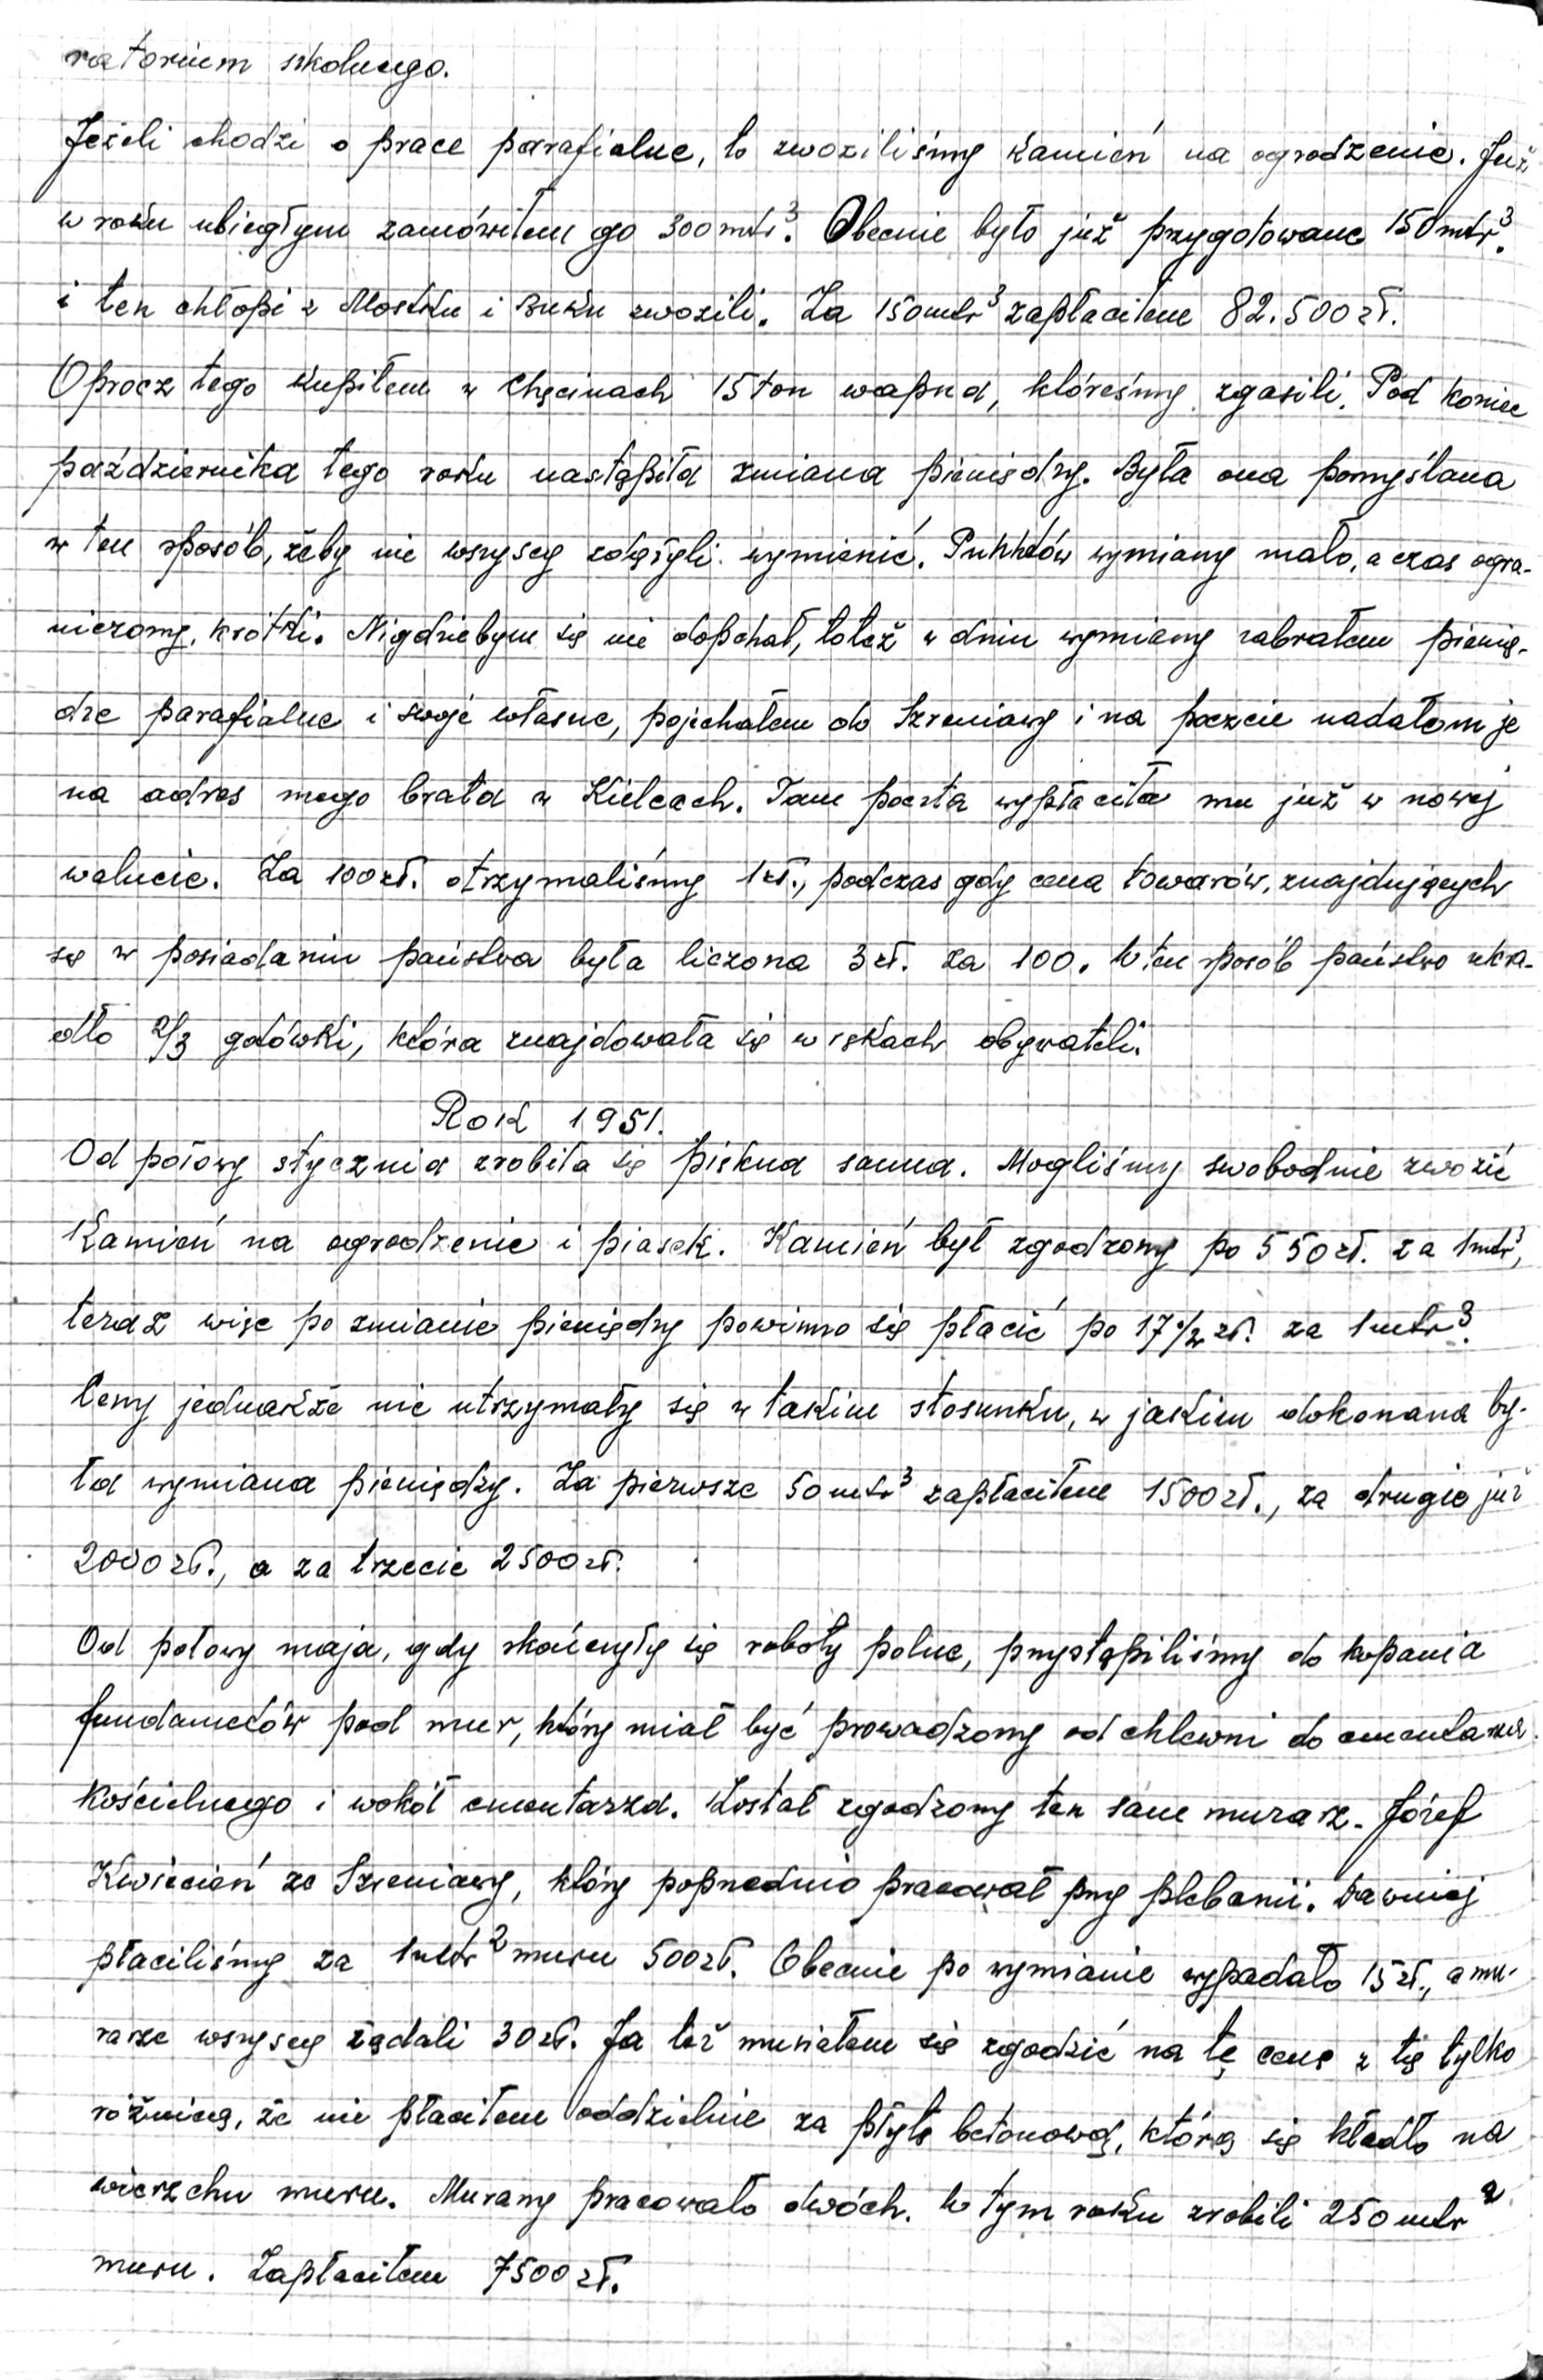 ratorium szkolnego.
Jeżeli chodzi o prace parafialne, to zwoziliśmy kamień na ogrodzenie. Już
w roku ubiegłym zamówiłem go 300 mtr³. Obecnie było już przygotowane 150 mtr³.
i ten chłopi z Mostku i Buku zwozili. Za 150 mtr³ zapłaciłem 82.500 zł.
Oprocz tego kupiłem w Chęcinach 15 ton wapna, któreśmy zgasili. Pod koniec
października tego roku nastąpiła zmiana pieniędzy. Była ona pomyślana
w ten sposób, żeby nie wszyscy zdążyli wymienić. Punktów wymiany mało, a czas ogra-
niczony, krótki. Nigdziebym się nie dopchał, toteż w dniu wymiany zabrałem pienię-
dze parafialne i swoje własne, pojechałem do Szreniawy i na poczcie nadałem je
na adres mego brata w Kielcach. Tam poczta wypłaciła mu już w nowej
walucie. Za 100 zł. otrzymaliśmy 1 zł., podczas gdy cena towarów, znajdujących
się w posiadaniu państwa była liczona 3 zł. za 100. W ten sposób państwo ukra-
dło 2/3 gotówki, która znajdowała się w rękach obywateli.
Rok 1951.
Od połowy stycznia zrobiła się piękna sanna. Mogliśmy swobodnie zwozić
kamień na ogrodzenie i piasek. Kamień był zgodzony po 550 zł. za 1 mtr³,
teraz więc po zmianie pieniędzy powinno się płacić po 17 1/2 zł. za 1 mtr³.
Ceny jednakże nie utrzymały się w takim stosunku, w jakim dokonana by-
ła wymiana pieniędzy. Za pierwsze 50 mtr³ zapłaciłem 1500 zł., za drugie już
2000 zł., a za trzecie 2500 zł.
Od połowy maja, gdy skończyły się roboty polne, przystąpiliśmy do kopania
fundametów pod mur, który miał być prowadzony od chlewni do cmentarza
kościelnego i wokół cmentarza. Został zgodzony ten sam murarz - Józef
Kwiecień ze Szreniawy, który poprzednio pracował przy plebanii. Dawniej
płaciliśmy za 1 mtr² muru 500 zł. Obecnie po wymianie wypadało 15 zł., a mu-
rarze wszyscy żądali 30 zł. Ja też musiałem się zgodzić na tę cenę z tą tylko
różnicą, że nie płaciłem oddzielnie za płytę betonową, którą się kładło na
wierzchu muru. Murarzy pracowało dwóch. W tym roku zrobili 250 mtr²
muru. Zapłaciłem 7500 zł.